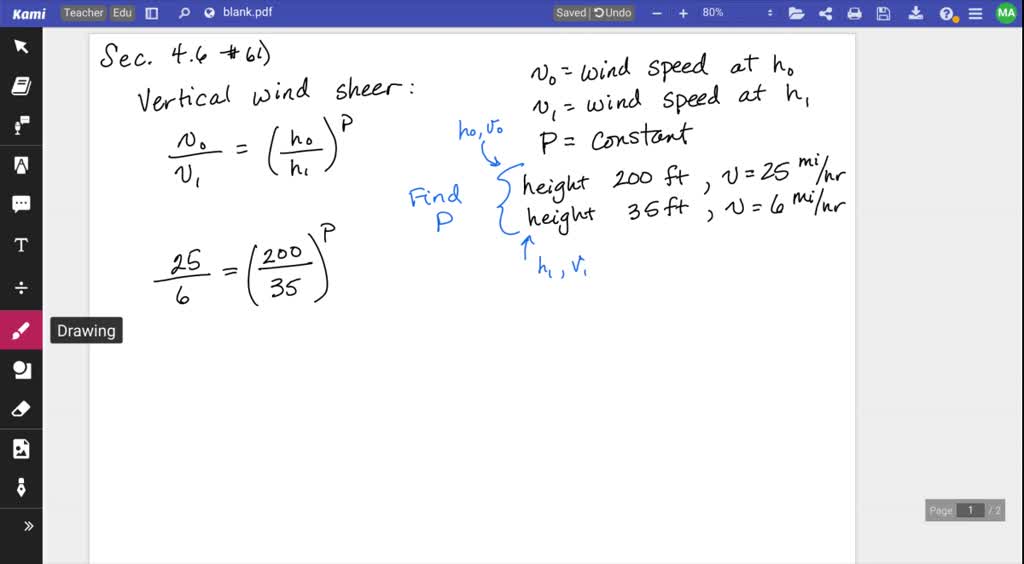 Kami Teacher Edu blank.pdf Saved Undo 80% MA
Sec. 4.6 #61)
Vertical wind sheer:
v₀/v₁ = (h₀/h₁)^P
v₀ = wind speed at h₀
v₁ = wind speed at h₁
P = constant
h₀, v₀
Find P
height 200 ft, v = 25 mi/hr
height 35 ft, v = 6 mi/hr
h₁, v₁
25/6 = (200/35)^P
T
Drawing
Page 1 / 2